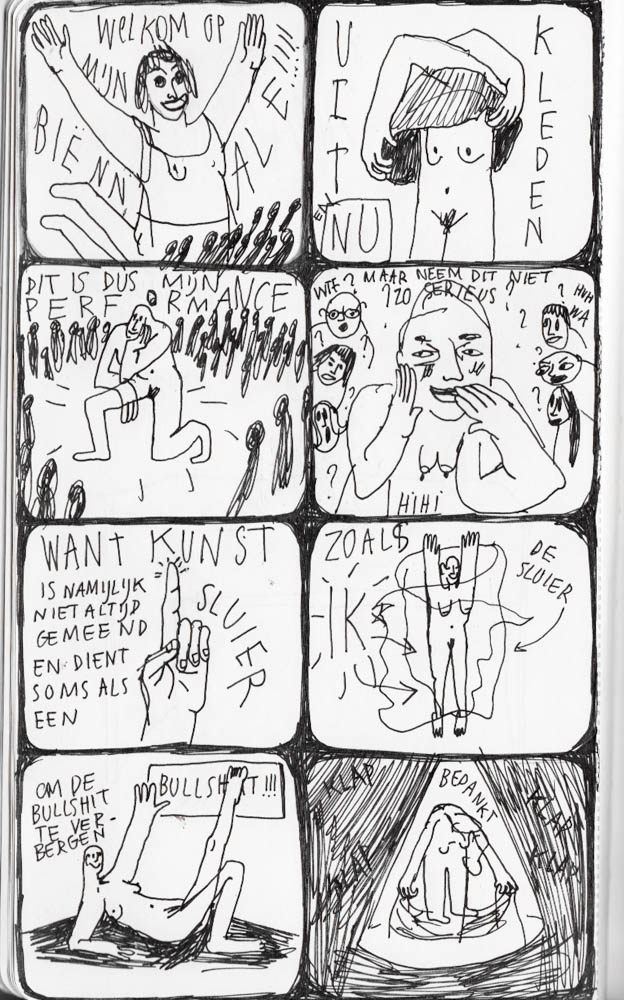 WELKOM OP
MIJN
BIËNNALE!!!!
UIT
KLEDEN
EN
NU
DIT IS DUS MIJN
PERFORMANCE
MAAR NEEM DIT NIET
ZO SERIEUS
WTF?
HUH
WA
HiHi
WANT KUNST
IS NAMIJLIJK
NIET ALTIJD
GEMEEND
EN DIENT
SOMS ALS
EEN
SLUIER
ZOALS
IK
DE
SLUIER
OM DE
BULLSHIT
TE VER-
BERGEN
BULLSHIT!!!
KLAP
BEDANKT
KLAP
KLAP
KLAP